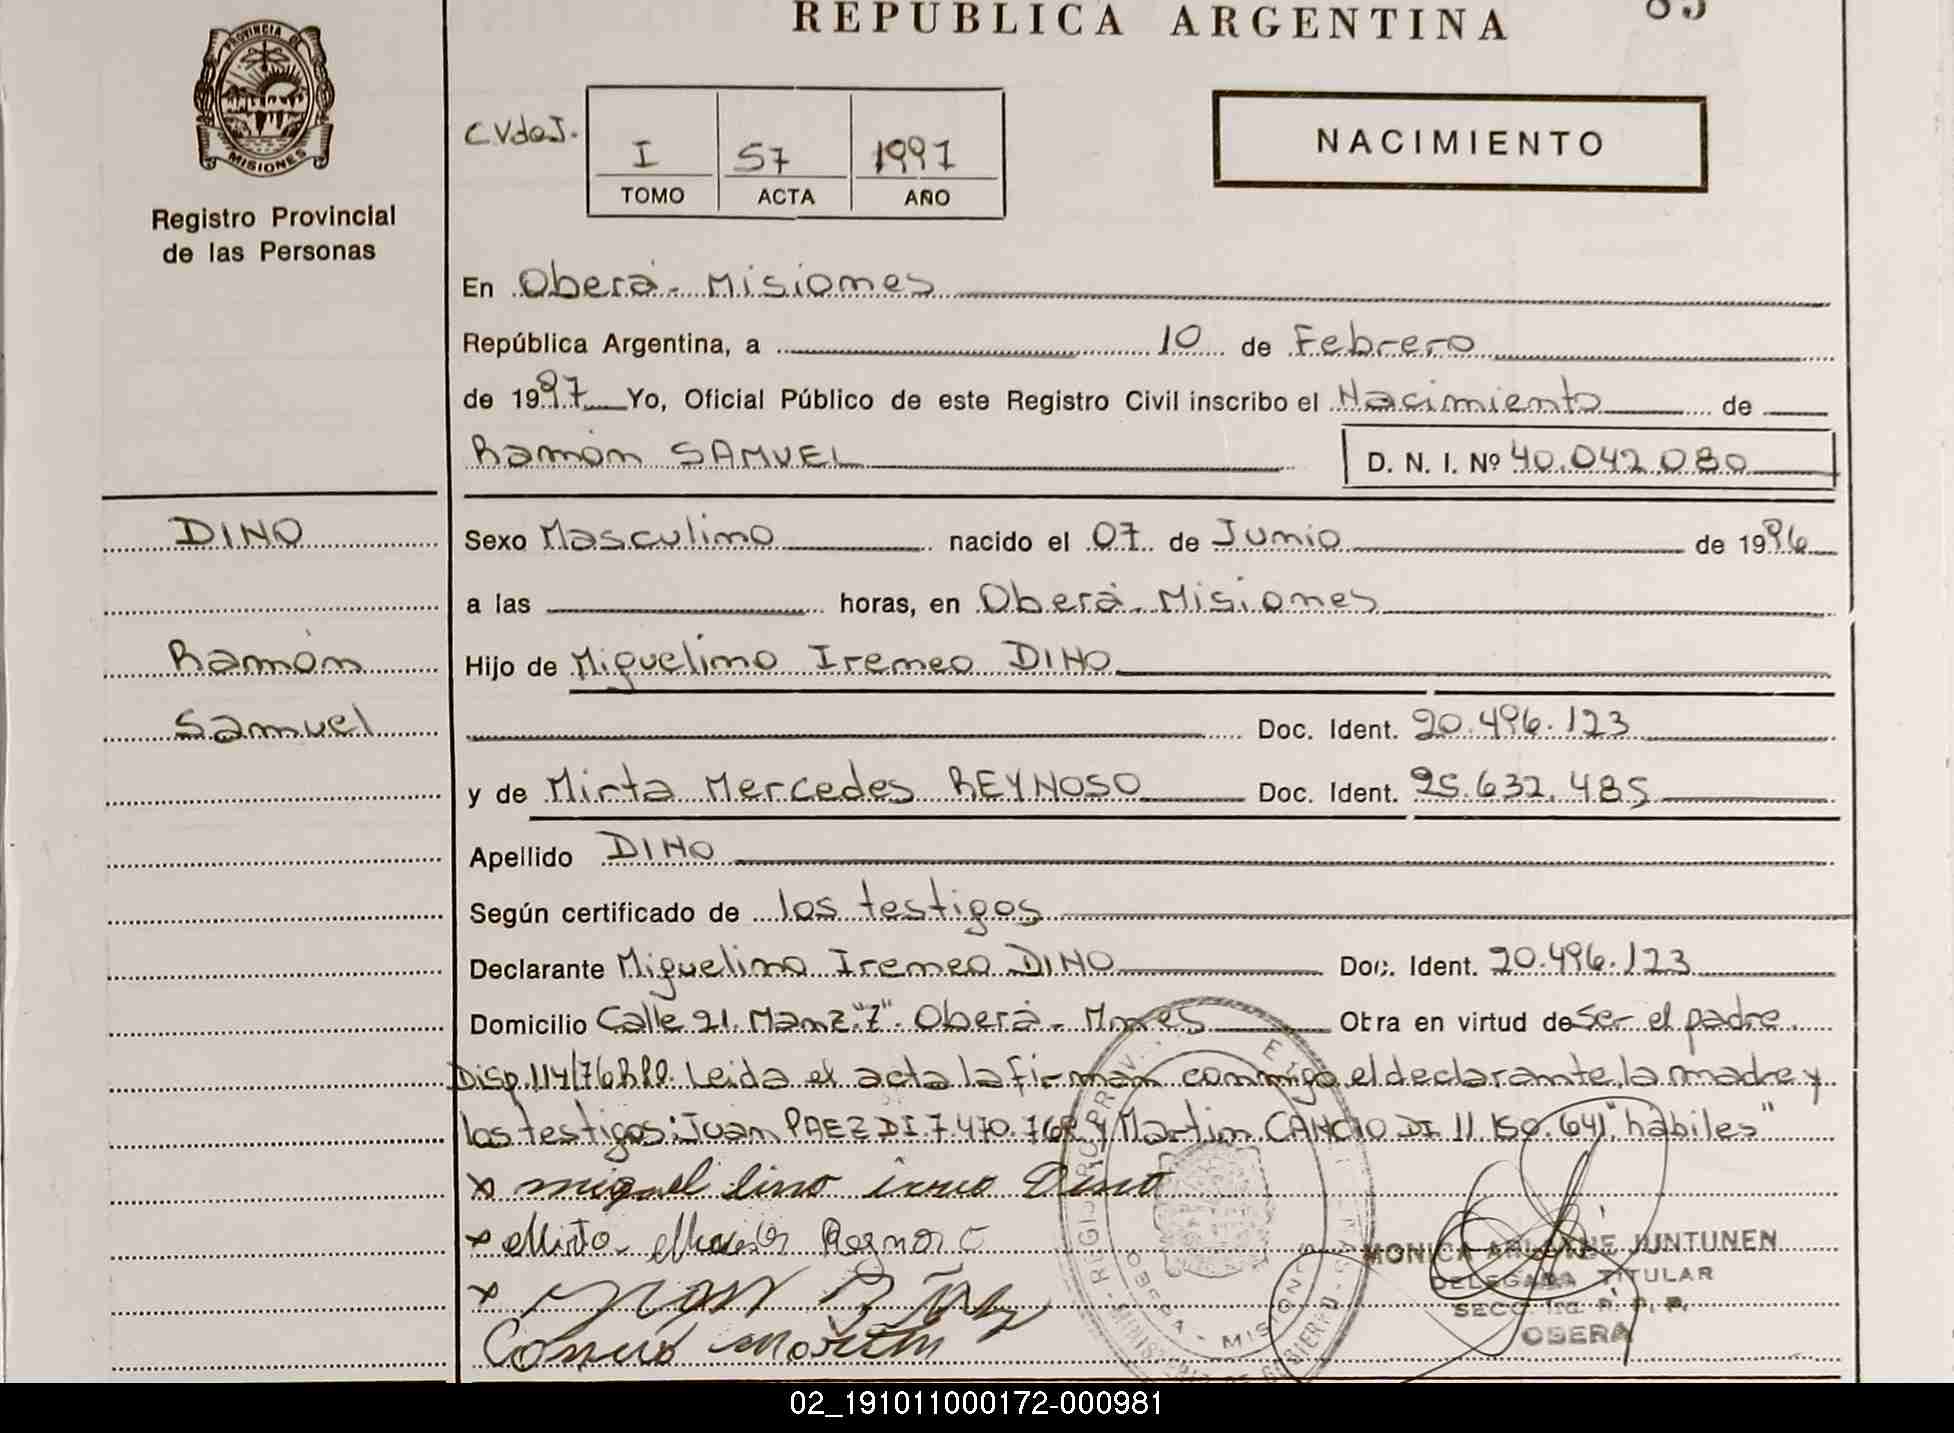 REPUBLICA ARGENTINA
PROVINCIA DE
MISIONES
Registro Provincial
de las Personas
C.V de J.
I 57 1997
TOMO ACTA AÑO
NACIMIENTO
En Oberá - Misiones
República Argentina, a 10 de Febrero
de 1997 Yo, Oficial Público de este Registro Civil inscribo el Nacimiento de
Ramón SAMUEL D. N. I. Nº 40.042.080
DINO
Sexo Masculino nacido el 07 de Junio de 1996
a las horas, en Oberá - Misiones
Ramón
Hijo de Miguelino Ireneo DINO
Samuel
Doc. Ident. 20.496.123
y de Mirta Mercedes REYNOSO Doc. Ident. 25.632.485
Apellido DINO
Según certificado de los testigos
Declarante Miguelino Ireneo DINO Doc. Ident. 20.496.123
Domicilio Calle 21. Manz "7". Oberá - Mnes Obra en virtud de Ser el padre.
Disp. 114/76 RPP. Leida el acta la firman conmigo el declarante, la madre y
los testigos: Juan PAEZ DI 7.470.768 y Martin CANCIO DI 11.150.641 "hábiles"
x miguel lino Dino
x Mirta Reynoso
x
MONICA JUNTUNEN
DELEGADA TITULAR
SECC. 1ra. R. P. P.
OBERA
OBERA - MISIONES
02_191011000172-000981